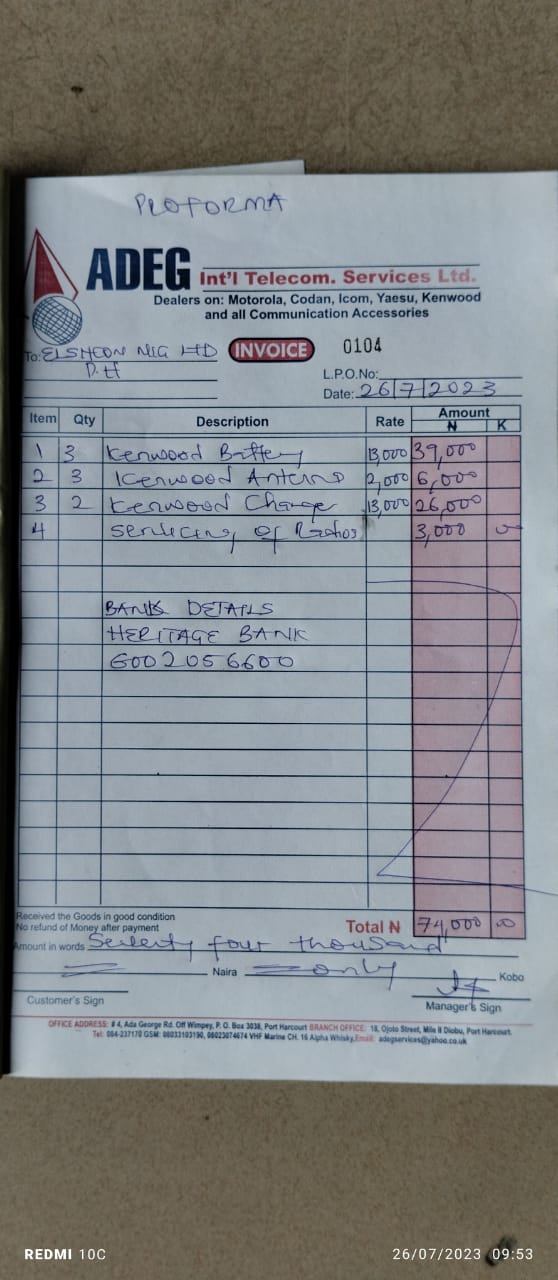 PROFORMA
ADEG Int'l Telecom. Services Ltd.
Dealers on: Motorola, Codan, Icom, Yaesu, Kenwood
and all Communication Accessories
To: ELSHCON NIG LTD INVOICE 0104
P.H
L.P.O.No:
Date: 26/7/2023
Item Qty Description Rate Amount
N K
1 3 Kenwood Battery 13,000 39,000
2 3 Kenwood Antenna 2,000 6,000
3 2 Kenwood Charger 13,000 26,000
4 Servicing of Radios 3,000 00
BANK DETAILS
HERITAGE BANK
6002056600
Received the Goods in good condition
No refund of Money after payment
Total N 74,000 00
Amount in words Seventy four thousand
Naira only Kobo
Customer's Sign
Manager's Sign
OFFICE ADDRESS: # 4, Ada George Rd. Off Wimpey, P. O. Box 3038, Port Harcourt BRANCH OFFICE: 18, Ojoto Street, Mile II Diobu, Port Harcourt.
Tel: 084-237170 GSM: 08033103190, 08023074674 VHF Marine CH. 16 Alpha Whisky. Email: adegservices@yahoo.co.uk
REDMI 10C
26/07/2023 09:53